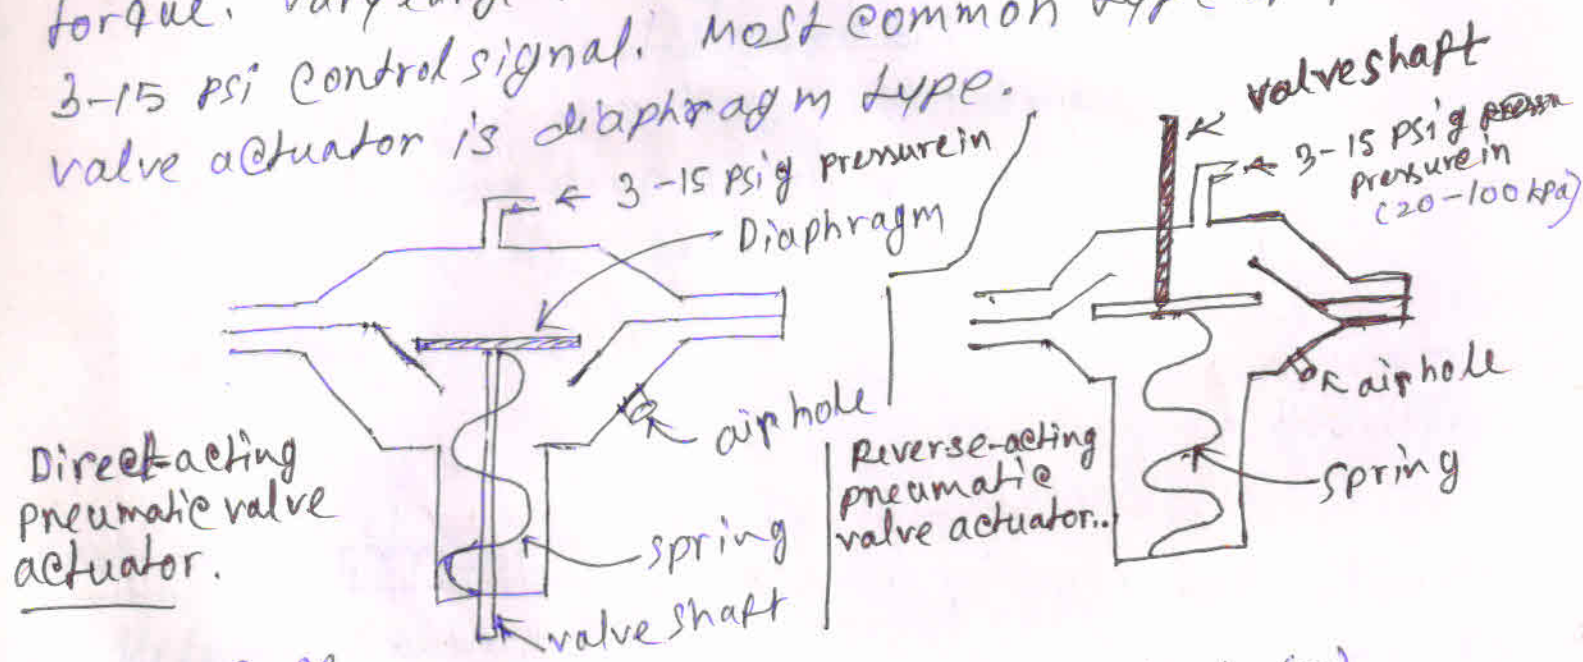 torque.
3-15 psi control signal. Most common type
valve actuator is diaphragm type.
← 3-15 psig pressure in
Diaphragm
air hole
Direct-acting
pneumatic valve
actuator.
spring
valve shaft
valve shaft
← 3-15 psig
pressure in
(20-100 kpa)
air hole
Reverse-acting
pneumatic
valve actuator..
spring